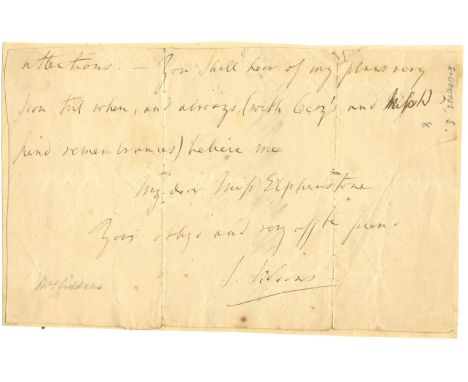 attentions. — You shall hear of my plans very
soon til when, and always, (with Cecy's and Miss W's
kind remembrances) believe me
My dear Miss Elphinstone
Your oblig'd and very aff te
S. Siddons
Mrs Siddons
8